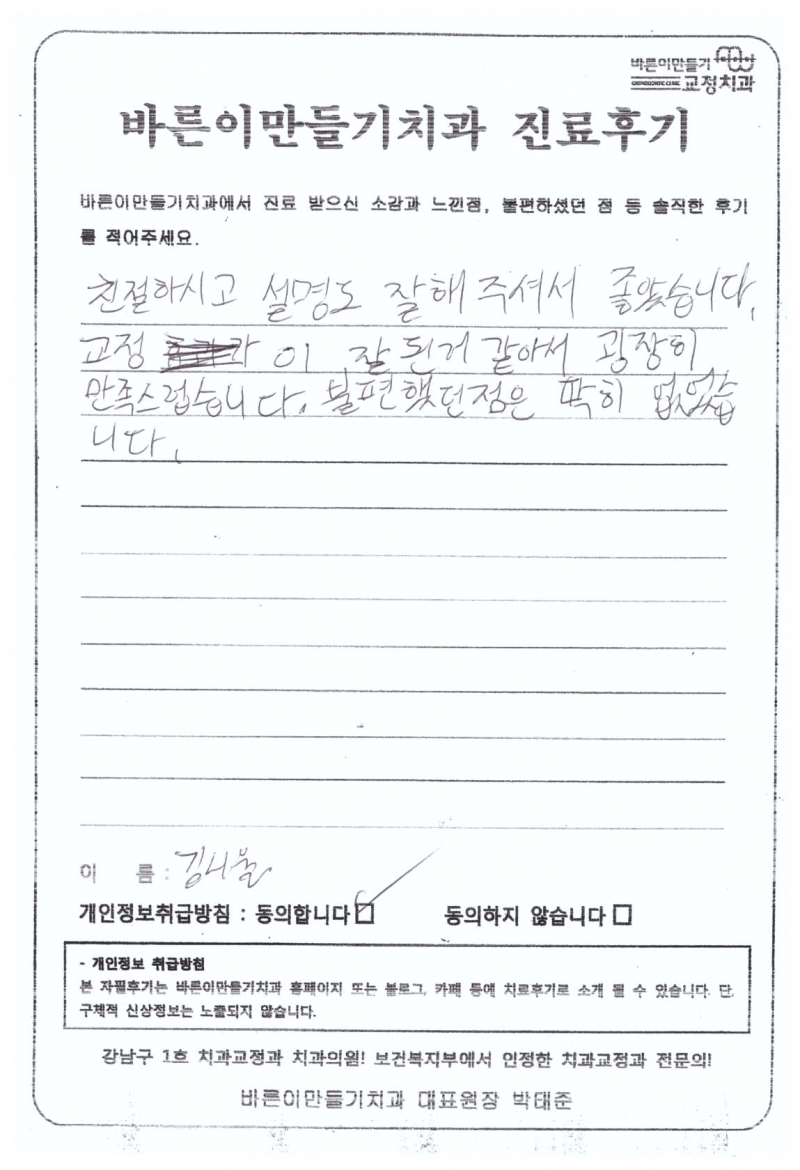 바른이만들기
ORTHODONTIC CLINIC 교정치과
바른이만들기치과 진료후기
바른이만들기치과에서 진료 받으신 소감과 느낀점, 불편하셨던 점 등 솔직한 후기
를 적어주세요.
친절하시고 설명도 잘해주셔서 좋았습니다.
교정 이 잘 된거 같아서 굉장히
만족스럽습니다. 불편했던점은 딱히 없었습
니다.
이 름 : 김시율
개인정보취급방침 : 동의합니다 동의하지 않습니다
- 개인정보 취급방침
본 자필후기는 바른이만들기치과 홈페이지 또는 블로그, 카페 등에 치료후기로 소개 될 수 있습니다. 단,
구체적 신상정보는 노출되지 않습니다.
강남구 1호 치과교정과 치과의원! 보건복지부에서 인정한 치과교정과 전문의!
바른이만들기치과 대표원장 박태준